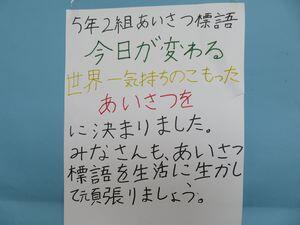 5年2組あいさつ標語
今日が変わる
世界一気持ちのこもった
あいさつを
に決まりました。
みなさんも、あいさつ
標語を生活に生かし
て頑張りましょう。